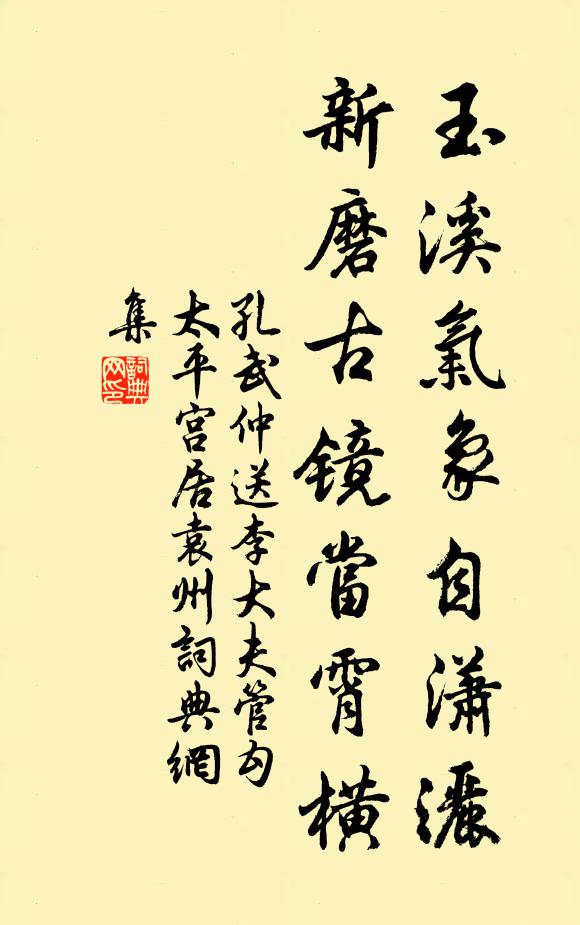 玉溪氣象自瀟灑
新磨古镜當霄橫
孔武仲送李大夫管勾
太平宫居袁州詞典網
集
詞典
网印